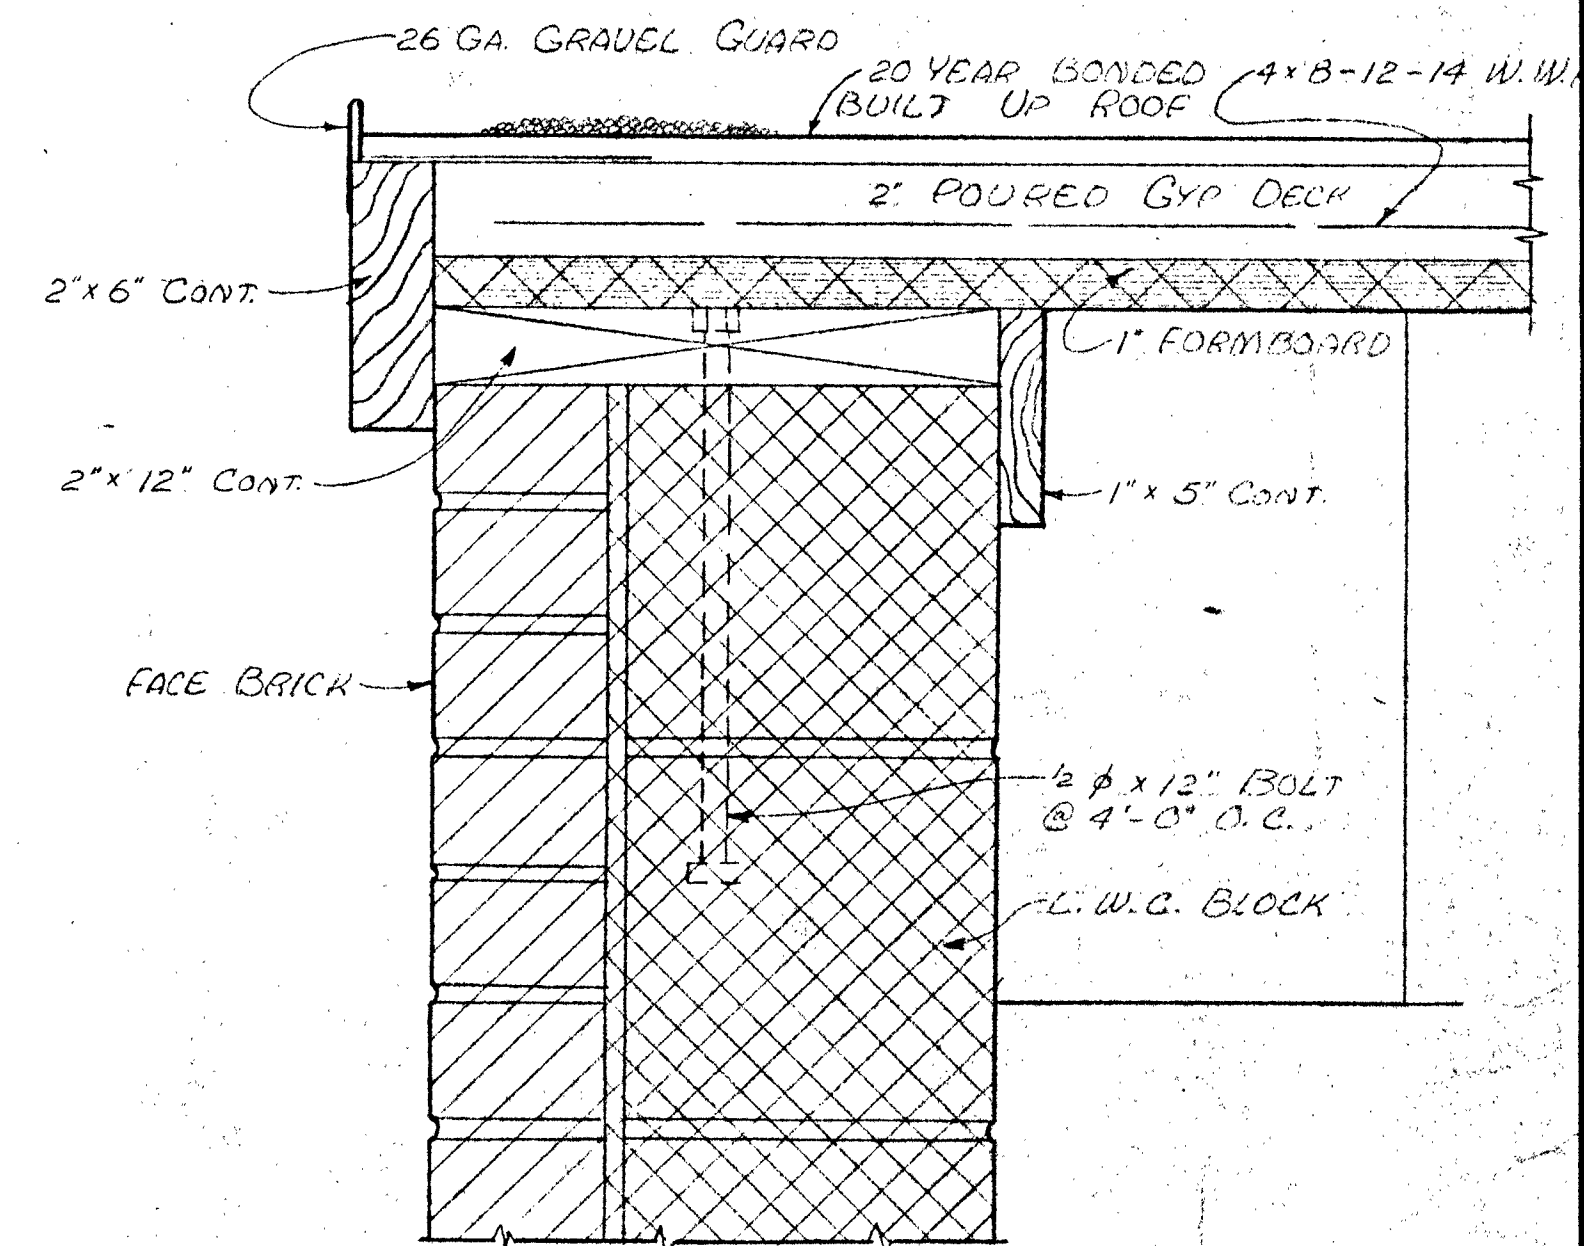 26 GA. GRAVEL GUARD
20 YEAR BONDED
BUILT UP ROOF
4×8-12-14 W.W.
2" POURED GYP DECK
2"×6" CONT.
1" FORMBOARD
2"×12" CONT.
1"×5" CONT.
FACE BRICK
½ φ ×12" BOLT
@ 4'-0" O.C.
L.W.C. BLOCK